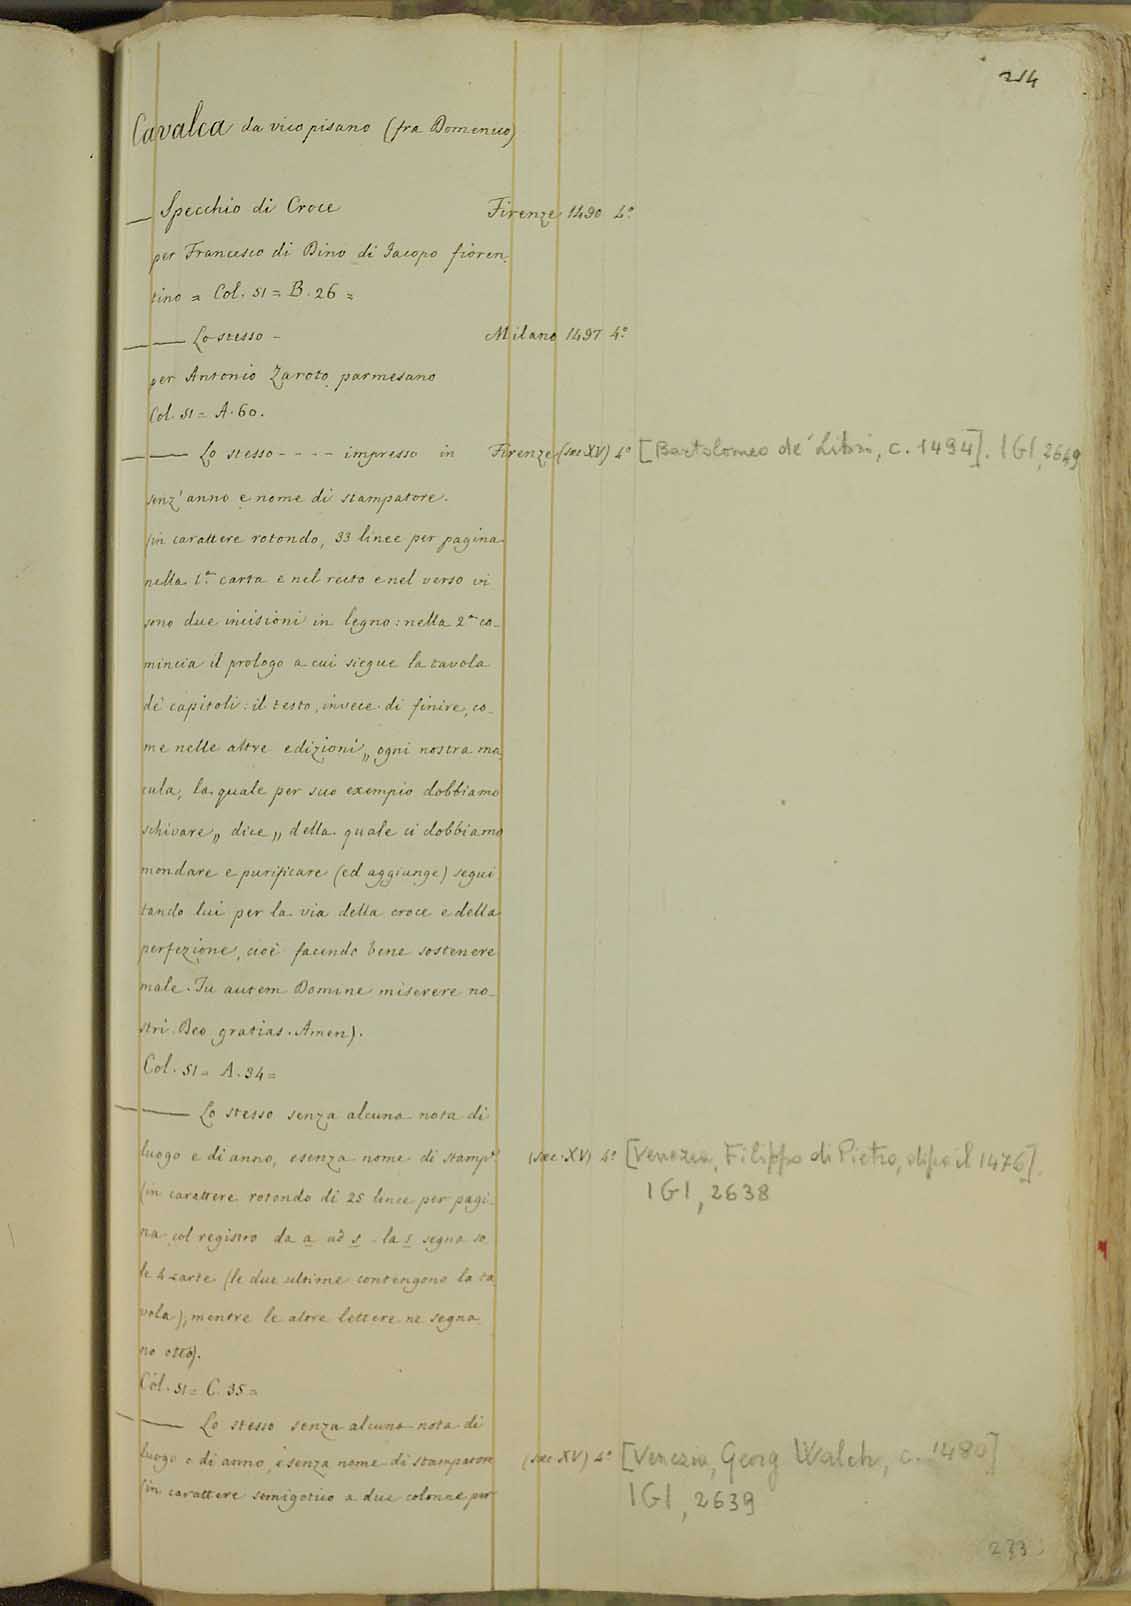 214
Cavalca da vico pisano (fra Domenico)
— Specchio di Croce Firenze 1490 4.º
per Francesco di Dino di Jacopo fioren-
tino = Col. 51 = B. 26 =
—— Lo stesso - Milano 1497 4.º
per Antonio Zaroto parmesano
Col. 51 = A. 60.
—— Lo stesso - - - - impresso in Firenze (sæc XV) 4.º [Bartolomeo de' Libri, c. 1494]. IGI, 2649
senz' anno e nome di stampatore.
(in carattere rotondo, 33 linee per pagina
nella 1.ª carta e nel recto e nel verso vi
sono due incisioni in legno: nella 2.ª co-
mincia il prologo a cui siegue la tavola
de' capitoli: il testo, invece di finire, co-
me nelle altre edizioni „ ogni nostra ma-
cula, la quale per suo exempio dobbiamo
schivare „ dice „ della quale ci dobbiamo
mondare e purificare (ed aggiunge) segui
tando lui per la via della croce e della
perfezione, cioè facendo bene sostenere
male. Tu autem Domine miserere no-
stri. Deo gratias. Amen).
Col. 51 = A. 34 =
—— Lo stesso senza alcuna nota di
luogo e di anno, e senza nome di stamp.e (sæc. XV) 4.º [Venezia, Filippo di Pietro, dopo il 1476].
IGI, 2638
(in carattere rotondo di 25 linee per pagi-
na col registro da a ad s - la s segna so
le 4 carte (le due ultime contengono la ta
vola), mentre le altre lettere ne segna
no otto).
Col. 51 = C. 35 =
—— Lo stesso senza alcuna nota di
luogo e di anno, e senza nome di stampatore (sæc XV) 4.º [Venezia, Georg Walch, c. 1480]
IGI, 2639
(in carattere semigotico a due colonne per
233